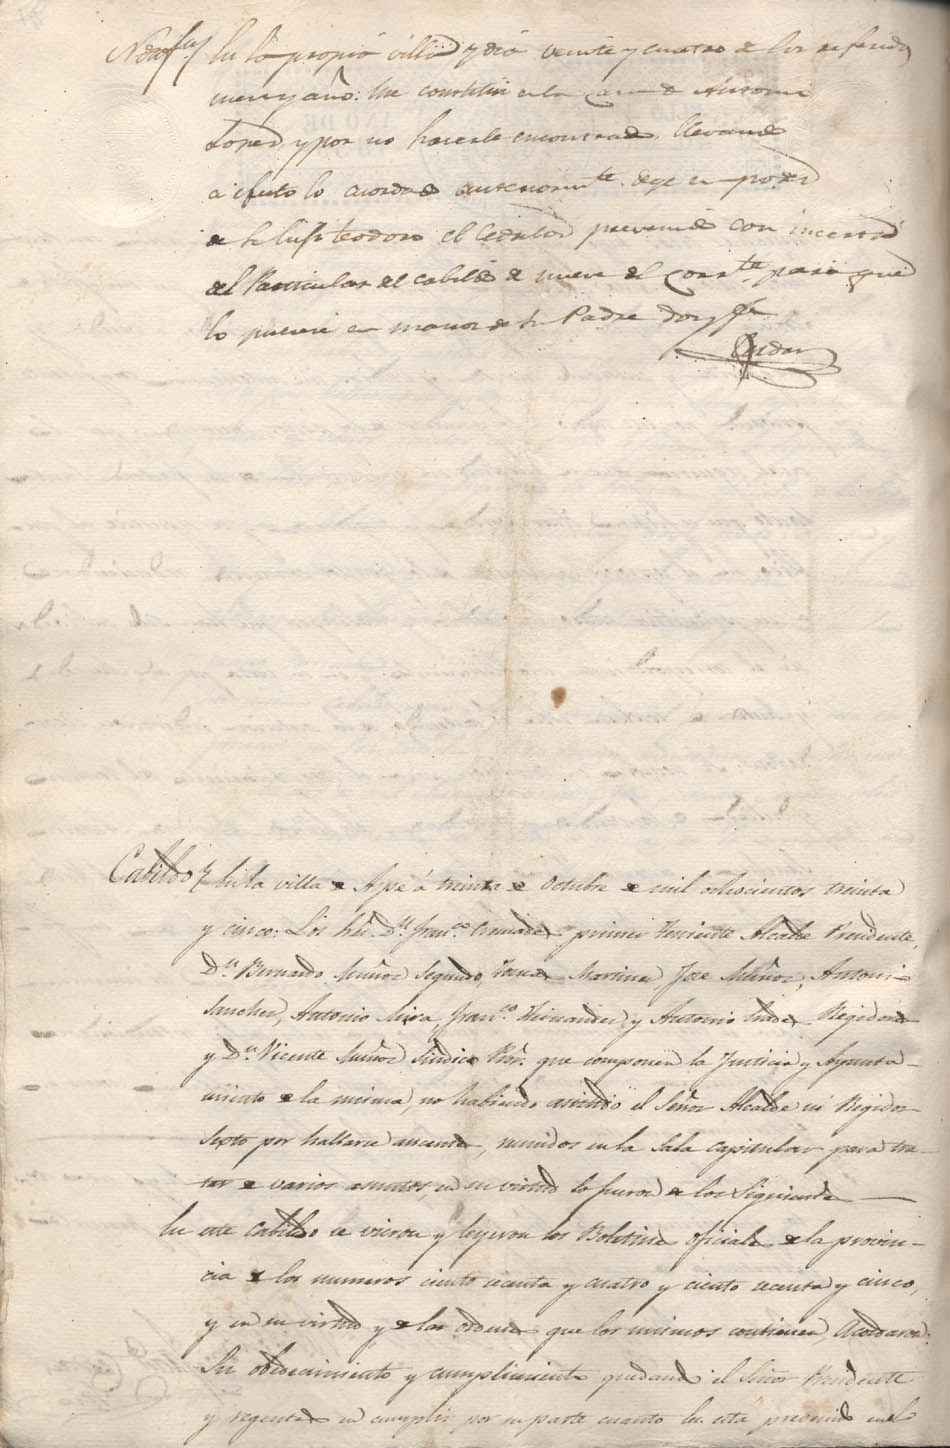 En la propia villa y dia veinte y cuatro de los referidos
mes y año: Me constitui en la Casa de Antonio
y por no haverle encontrado llevando
a efecto lo acordado anteriormte. deje en poder
de su hijo Teodoro el Cedulon prevenido con incercion
del Particular del cabildo de nueve del corrte. para que
lo pusiere en manos de su Padre doy fe
Cabildo En la villa de Aspe á treinta de Octubre de mil ochocientos treinta
y cinco: Los Sres. Dn. Franco. Cremades primer Teniente Alcalde Precidente,
Dn. Bernardo Muñoz Segundo, Tomas Martinez Jose Muñoz, Antonio
Sanchez, Antonio Mira Franco. Hernandez y Antonio Regidores
y Dn. Vicente Muñoz Sindico Ror. que componen la Justicia y Ayunta-
miento de la misma, no habiendo asistido el Señor Alcalde ni Regidor
Sexto por hallarse ausentes, reunidos en la Sala Capitular para tra-
tar de varios asuntos, en su virtud lo fueron de los Siguientes
En este Cabildo se vieron y leyeron los Boletines oficiales de la provin-
cia de los numeros ciento secenta y cuatro y ciento secenta y cinco,
y en su virtud y de las ordenes que los mismos contienen, Acordaron:
Su obedecimiento y cumplimiento quedando el Señor Precidente
y en cumplir por su parte cuanto les está prevenido en el